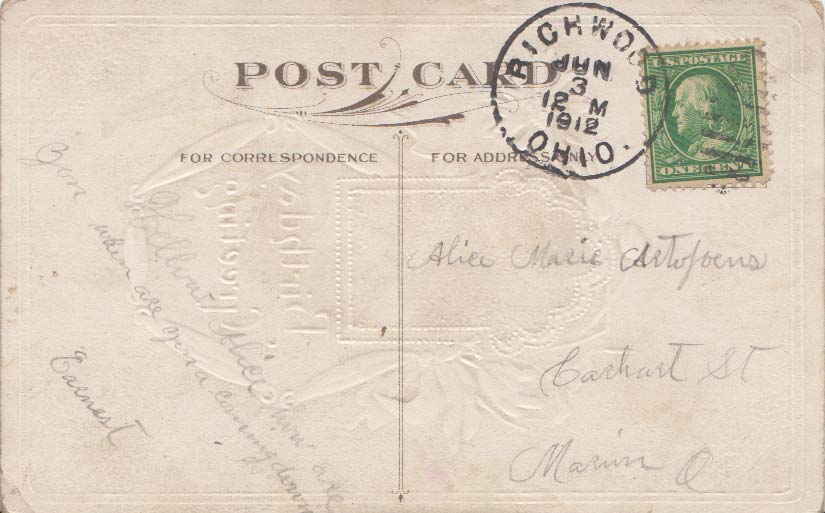 POST CARD
FOR CORRESPONDENCE
FOR ADDRESS ONLY
RICHWOOD
JUN
3
12 M
1912
OHIO.
U.S. POSTAGE
ONE CENT
Hellow Alice how are
You when are you a coming down
Earnest
Alice Marie Artopoeus
Carhart St
Marion O
Birthday
Greeting